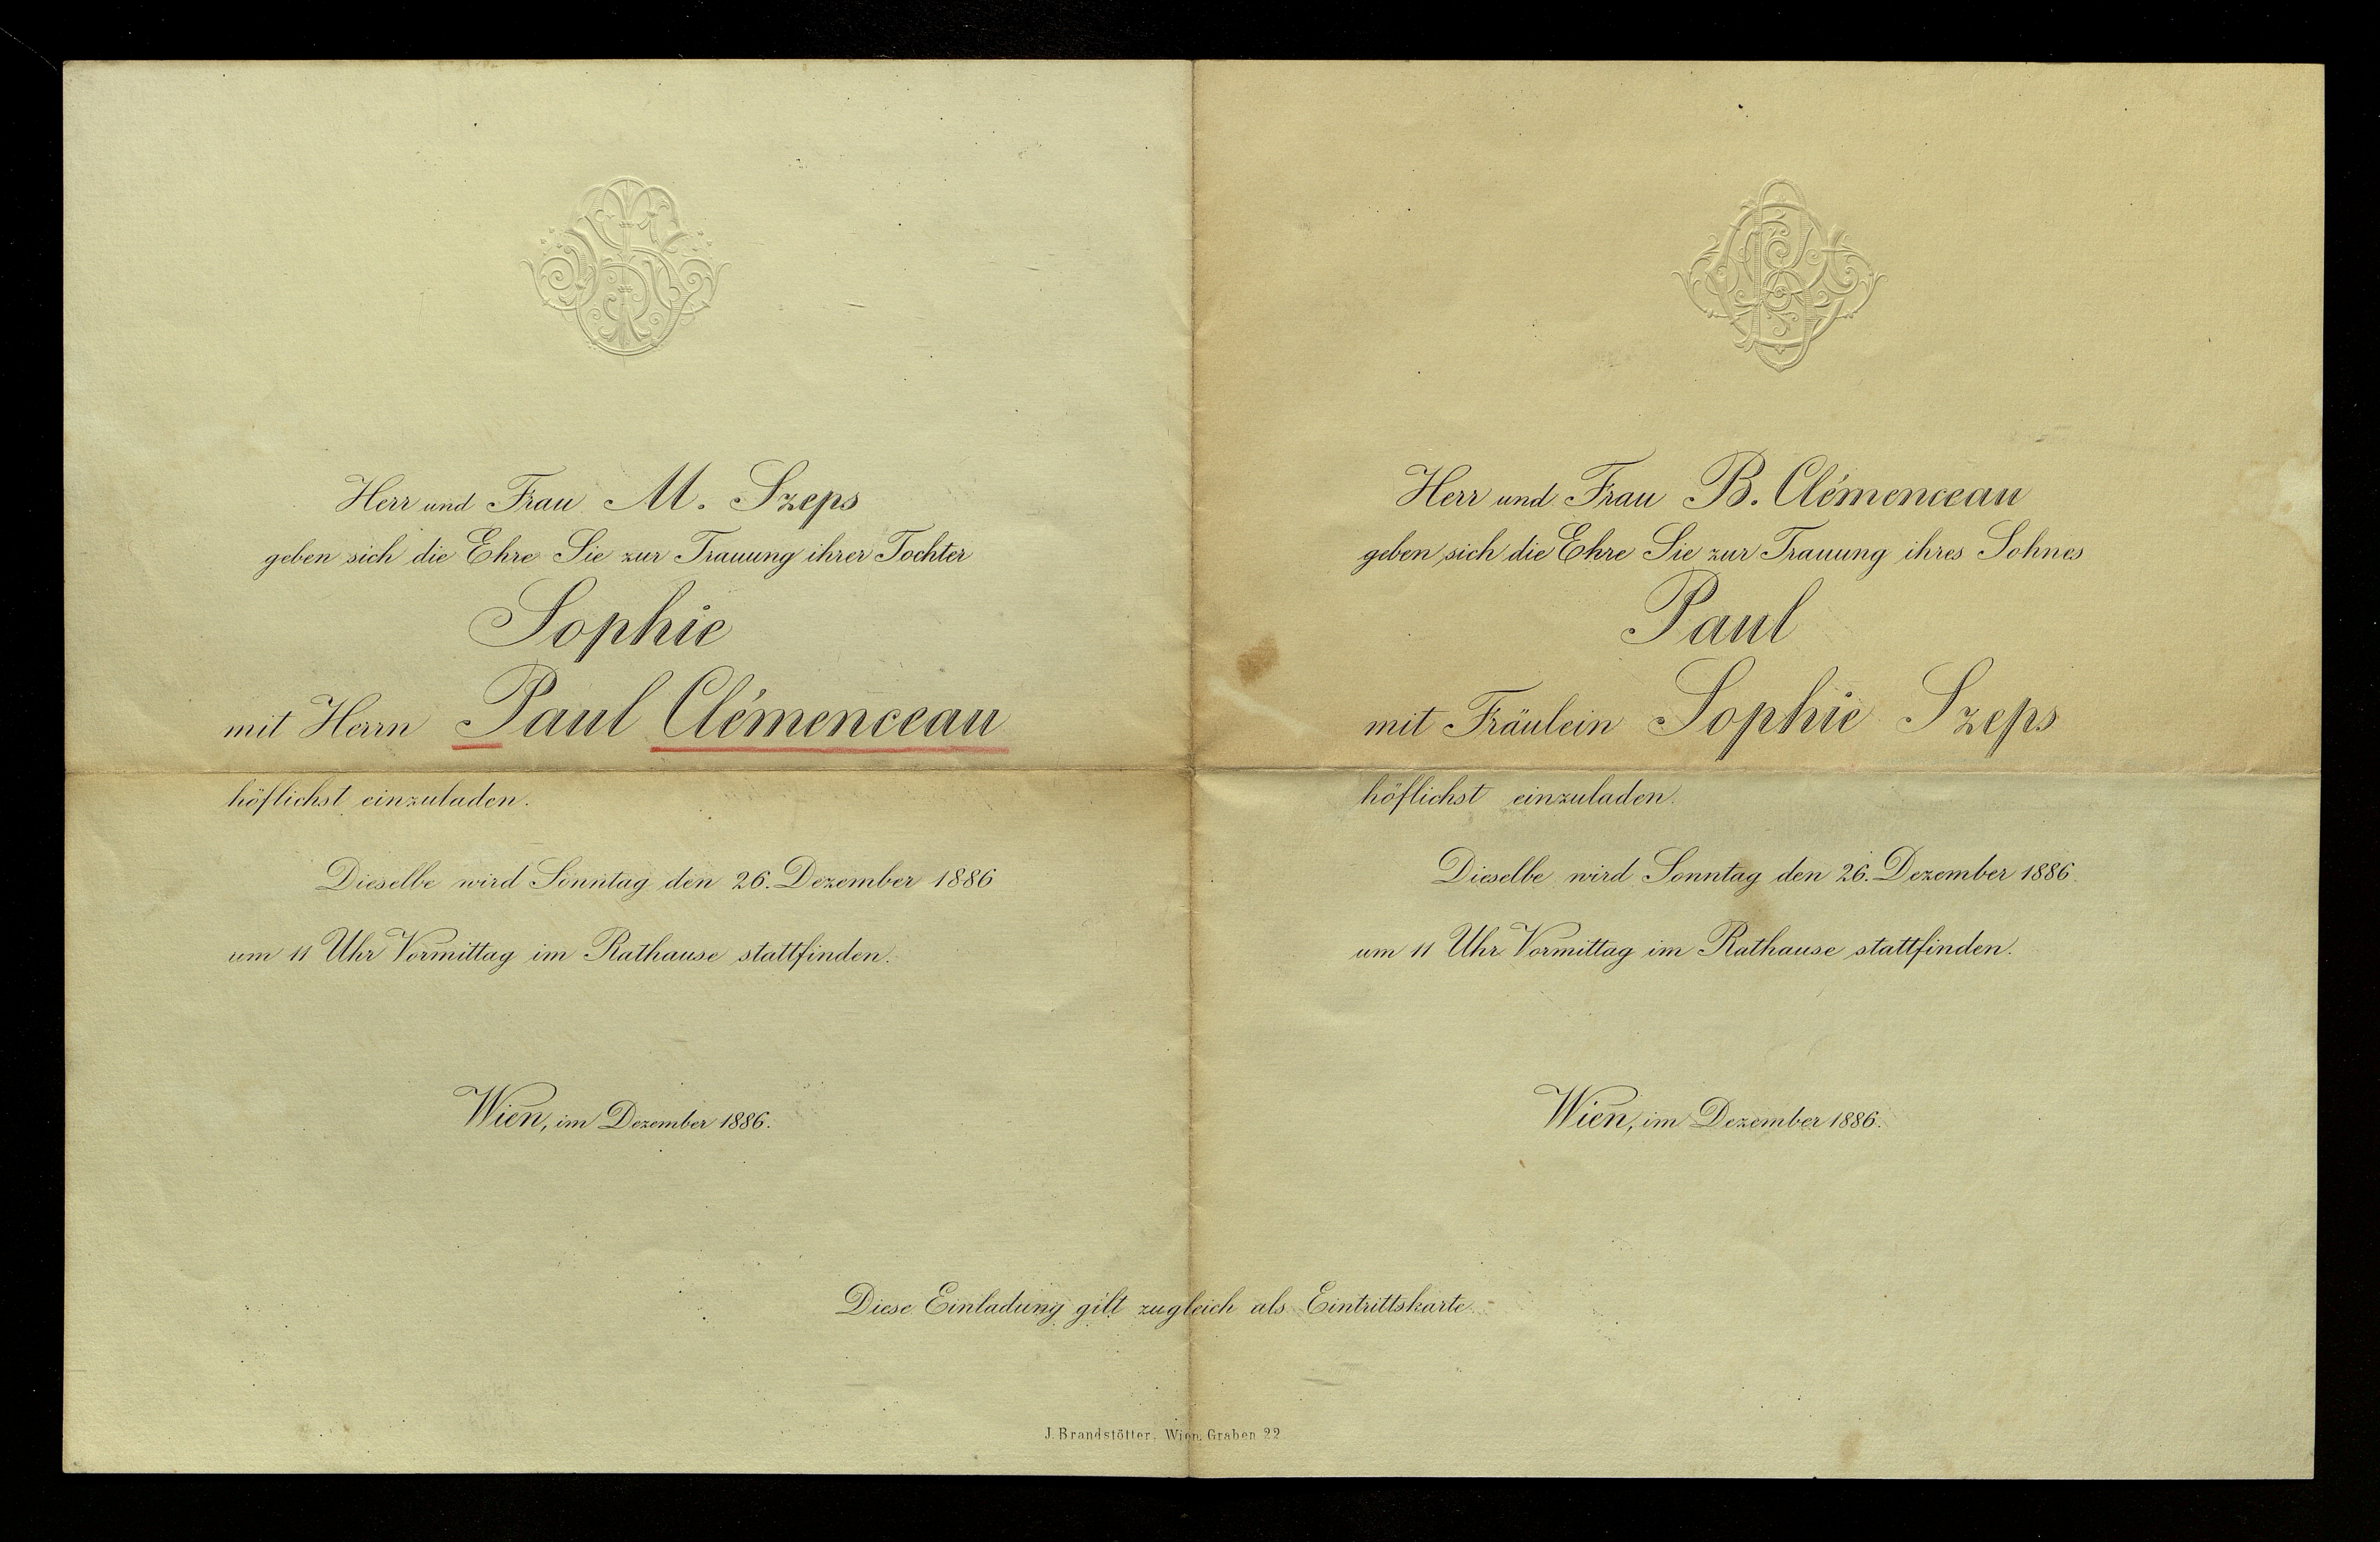 Herr und Frau M. Szeps
geben sich die Ehre Sie zur Trauung ihrer Tochter
Sophie
mit Herrn Paul Clémenceau
höflichst einzuladen.
Dieselbe wird Sonntag den 26. Dezember 1886
um 11 Uhr Vormittag im Rathause stattfinden.
Wien, im Dezember 1886.
Herr und Frau B. Clémenceau
geben sich die Ehre Sie zur Trauung ihres Sohnes
Paul
mit Fräulein Sophie Szeps
höflichst einzuladen.
Dieselbe wird Sonntag den 26. Dezember 1886.
um 11 Uhr Vormittag im Rathause stattfinden.
Wien, im Dezember 1886.
Diese Einladung gilt zugleich als Eintrittskarte.
J. Brandstötter, Wien, Graben 22